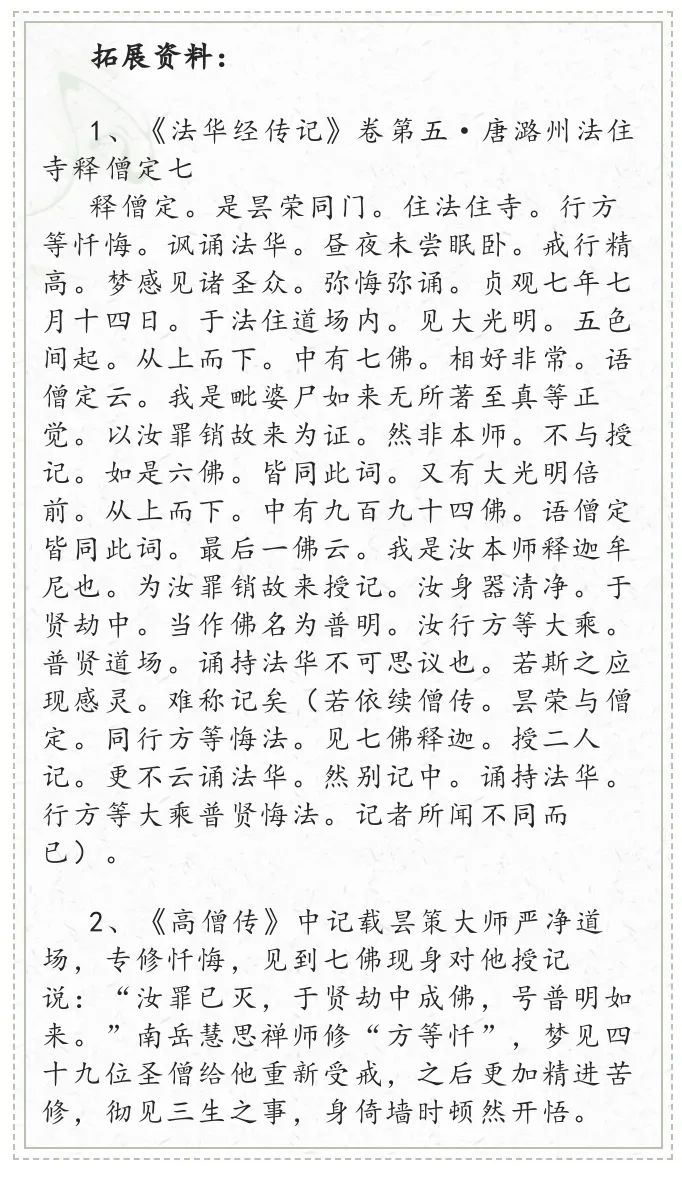 拓展资料：
1、《法华经传记》卷第五·唐潞州法住
寺释僧定七
释僧定。是昙荣同门。住法住寺。行方
等忏悔。讽诵法华。昼夜未尝眠卧。戒行精
高。梦感见诸圣众。弥悔弥诵。贞观七年七
月十四日。于法住道场内。见大光明。五色
间起。从上而下。中有七佛。相好非常。语
僧定云。我是毗婆尸如来无所著至真等正
觉。以汝罪销故来为证。然非本师。不与授
记。如是六佛。皆同此词。又有大光明倍
前。从上而下。中有九百九十四佛。语僧定
皆同此词。最后一佛云。我是汝本师释迦牟
尼也。为汝罪销故来授记。汝身器清净。于
贤劫中。当作佛名为普明。汝行方等大乘。
普贤道场。诵持法华不可思议也。若斯之应
现感灵。难称记矣（若依续僧传。昙荣与僧
定。同行方等悔法。见七佛释迦。授二人
记。更不云诵法华。然别记中。诵持法华。
行方等大乘普贤悔法。记者所闻不同而
已）。
2、《高僧传》中记载昙策大师严净道
场，专修忏悔，见到七佛现身对他授记
说：“汝罪已灭，于贤劫中成佛，号普明如
来。”南岳慧思禅师修“方等忏”，梦见四
十九位圣僧给他重新受戒，之后更加精进苦
修，彻见三生之事，身倚墙时顿然开悟。